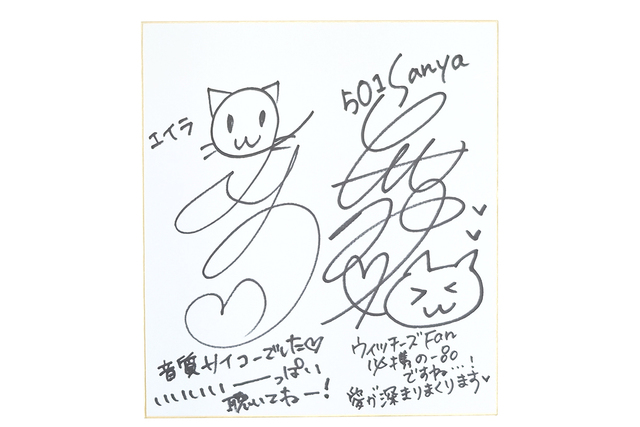 エイラ
音質サイコーでした♡
いいいいい──っぱい
聴いてねー!
501 Sanya
ウィッチーズFan
必携の-80
ですね…!
愛が深まりまくります♥